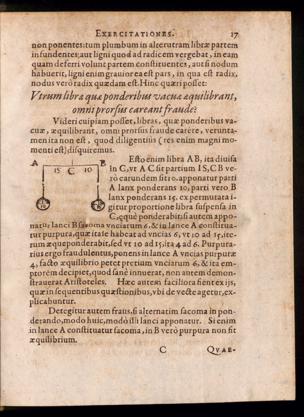 EXERCITATIONES. 17
non ponentes: tum plumbum in alterutram libræ partem
infundentes, aut ligni quod ad radicem vergebat, in eam
quam deferri volunt partem constituentes, aut si nodum
habuerit, ligni enim grauior ea est pars, in qua est radix,
nodus verò radix quædam est. Hinc quæri posset:
Vtrum libræ quæ ponderibus vacuæ æquilibrant,
omni prorsus careant fraude?
Videri cuipiam posset, libras, quæ ponderibus va-
cuæ, æquilibrant, omni prorsus fraude carere, verunta-
men ita non est, quod diligentiùs (res enim magni mo-
menti est) disquiremus.
A B
15 C 10
Esto enim libra AB, ita diuisa
in C, vt AC sit partium 15, CB ve-
rò earundem sit 10. apponatur parti
A lanx ponderans 10, parti vero B
lanx ponderans 15. ex permutata i-
gitur proportione libra suspensa in
C, æquè ponderabit: si autem appo-
natur lanci B sacoma vnciarum 6, & in lance A constitua-
tur purpura, quæ ita se habeat ad vncias 6, vt 10 ad 15, ite-
rum æqueponderabit, sed vt 10 ad 15, ita 4 ad 6. Purpura-
rius ergo fraudulentus, ponens in lance A vncias purpuræ
4, facto æquilibrio petet pretium vnciarum 6, & ita em-
ptorem decipiet, quod sanè innuerat, non autem demon-
strauerat Aristoteles. Hæc autem faciliora fient ex ijs,
quæ in sequentibus quæstionibus, vbi de vecte agetur, ex-
plicabuntur.
Detegitur autem fraus, si alternatim sacoma in pon-
derando, modo huic, modò illi lanci apponatur. Si enim
in lance A constituatur sacoma, in B verò purpura non fit
æquilibrium.
C QVAE-